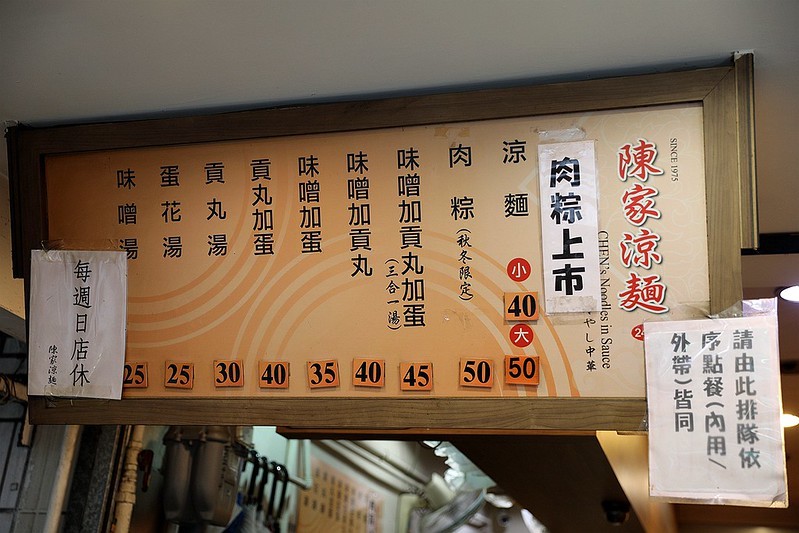 SINCE 1975
陳家涼麵
CHEN's Noodles in Sauce
やし中華
肉粽上市
涼麵
小
40
大
50
肉粽(秋冬限定)
50
味噌加貢丸加蛋(三合一湯)
45
味噌加貢丸
40
味噌加蛋
35
貢丸加蛋
40
貢丸湯
30
蛋花湯
25
味噌湯
25
每週日店休
陳家涼麵
請由此排隊依
序點餐(內用/
外帶)皆同